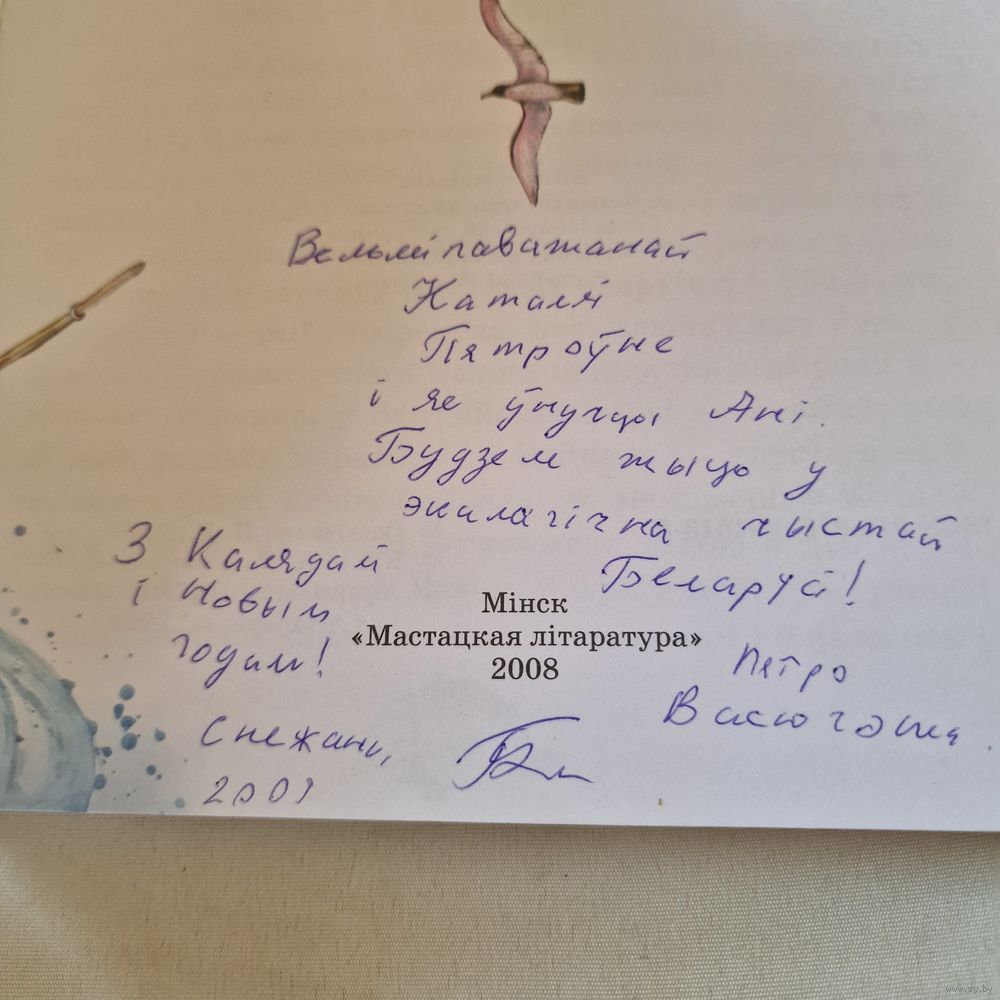 Вельмі паважанай
Наталлі
Пятроўне
і яе ўнучцы Ані.
Будзем жыць у
экалагічна чыстай
Беларусі!
З Калядамі
і Новым
годам!
Мінск
«Мастацкая літаратура»
2008
Пятро
Васючэнка
Снежань,
2009
www.ay.by